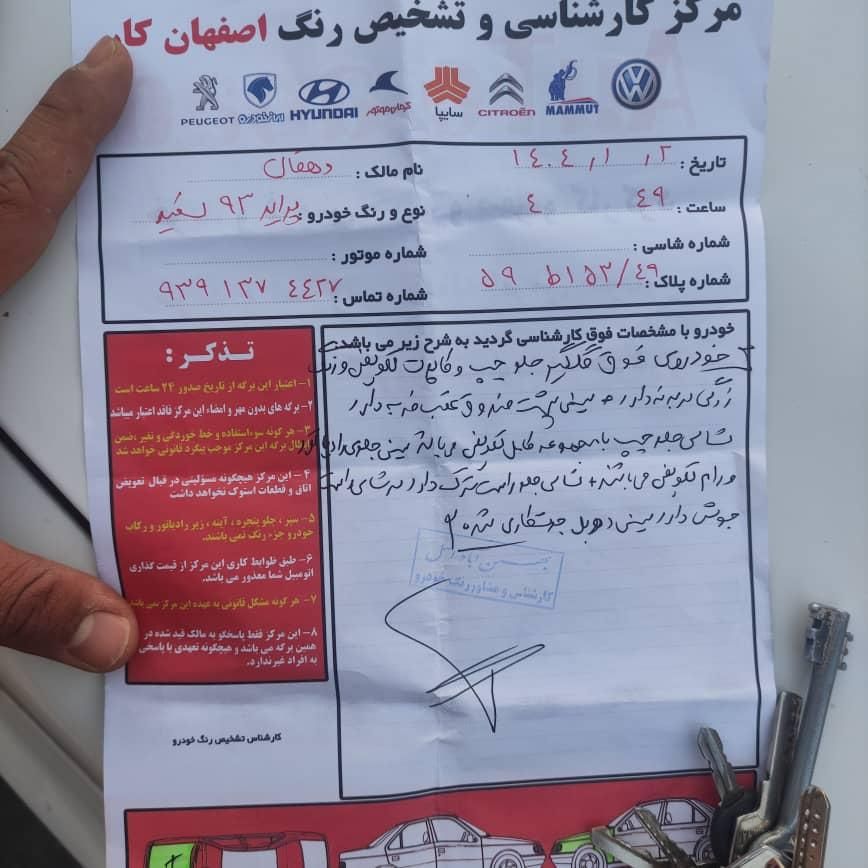 مرکز کارشناسی و تشخیص رنگ اصفهان کار
PEUGEOT
ایران خودرو
HYUNDAI
کرمان موتور
سایپا
CITROËN
MAMMUT
تاریخ : ۱۴۰۴ / ۱ / ۲
نام مالک : دهقان
ساعت : ۴ ۴۹
نوع و رنگ خودرو : پراید ۹۳ سفید
شماره شاسی :
شماره موتور :
شماره پلاک : ۵۹ ط ۱۵۲/۴۹
شماره تماس : ۹۳۹ ۱۳۷ ۴۴۲۷
خودرو با مشخصات فوق کارشناسی گردید به شرح زیر می باشد:
خودروی فوق گلگیر جلو چپ و کاپوت تعویض و رنگ
دارد سینی پشت صندوق عقب ضربه دارد
شاسی جلو چپ با مجموعه کامل تعویض می باشد سینی جلوی
و رام تعویض می باشد + شاسی جلو راست ترک دارد سرشاسی راست
جوش دارد سینی دوبل جوشکاری شده
کارشناس و مشاور رنگ خودرو
تذکر :
۱- اعتبار این برگه از تاریخ صدور ۲۴ ساعت است
۲- برگه های بدون مهر و امضاء این مرکز فاقد اعتبار میباشد
۳- هر گونه سوء استفاده و خط خوردگی و تغییر ،ضمن
ابطال برگه این مرکز موجب پیگرد قانونی خواهد شد
۴ - این مرکز هیچگونه مسؤلیتی در قبال تعویض
اتاق و قطعات استوک نخواهد داشت
۵- سپر ، جلو پنجره ، آینه ، زیر رادیاتور و رکاب
خودرو جزء رنگ نمی باشند.
۶- طبق ظوابط کاری این مرکز از قیمت گذاری
اتومبیل شما معذور می باشد.
۷- هر گونه مشکل قانونی به عهده این مرکز نمی باشد
۸- این مرکز فقط پاسخگو به مالک قید شده در
همین برگه می باشد و هیچگونه تعهدی یا پاسخی
به افراد غیر ندارد.
کارشناس تشخیص رنگ خودرو